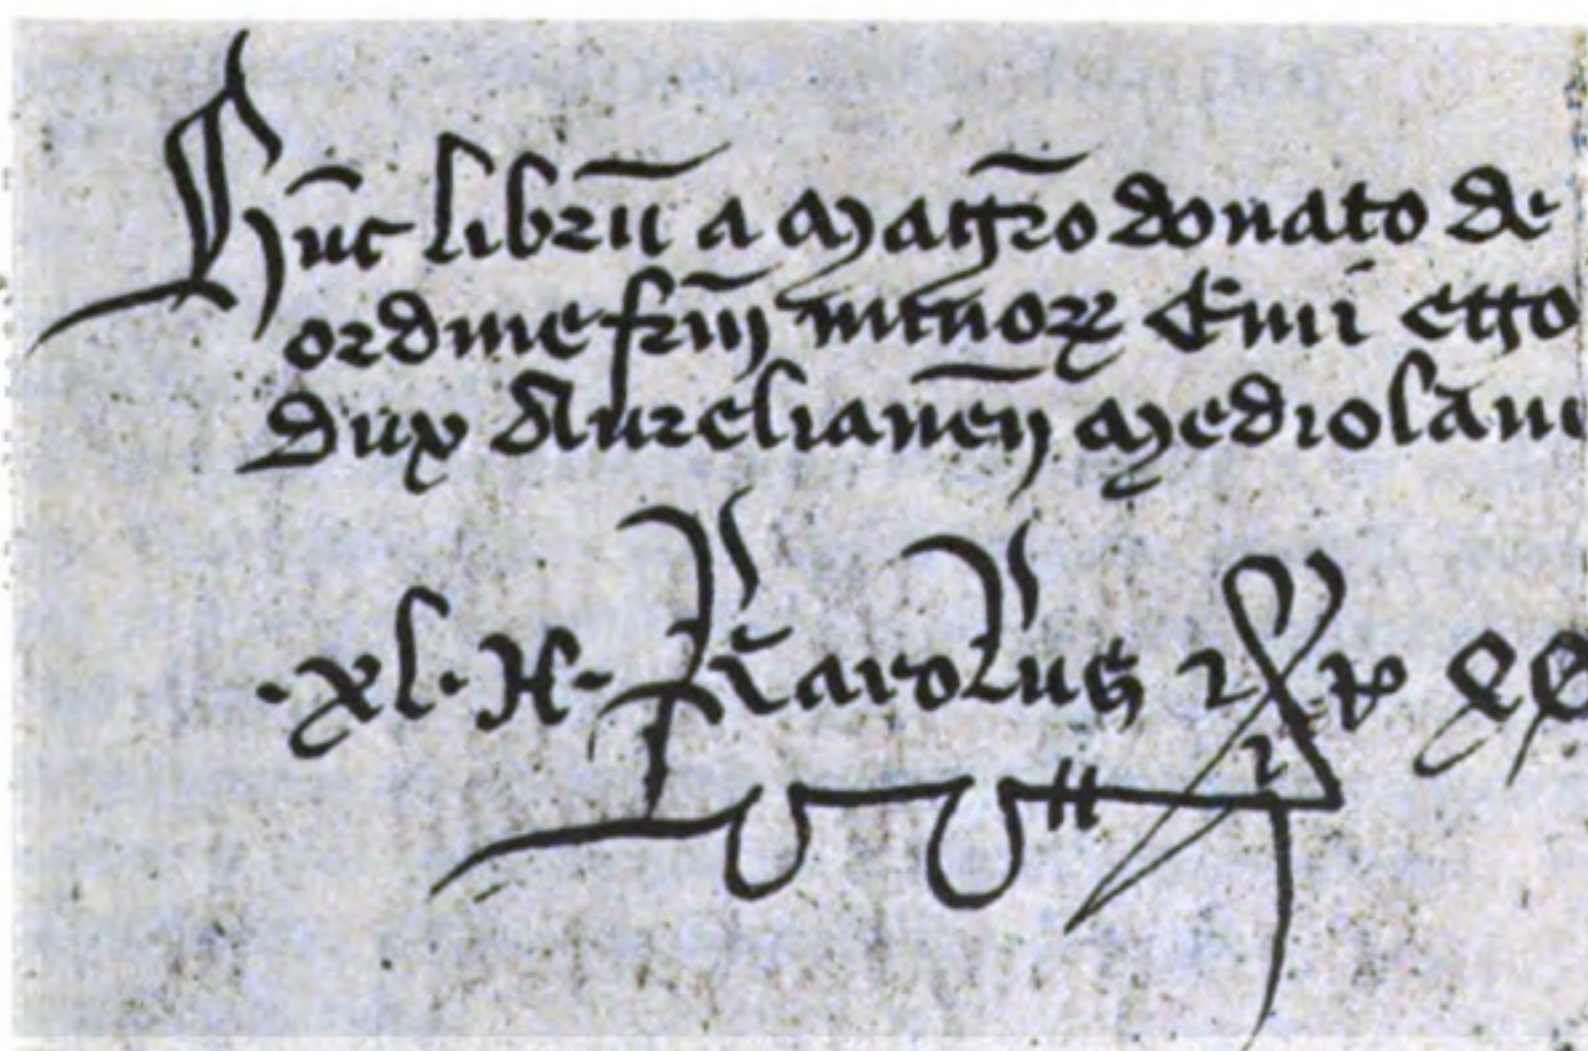 Hūc librū a Magr̄o donato de
ordine fr̄m minoꝝ Emi ego
Dux Aurelianēn Mediolani
.xl. H. Karolus